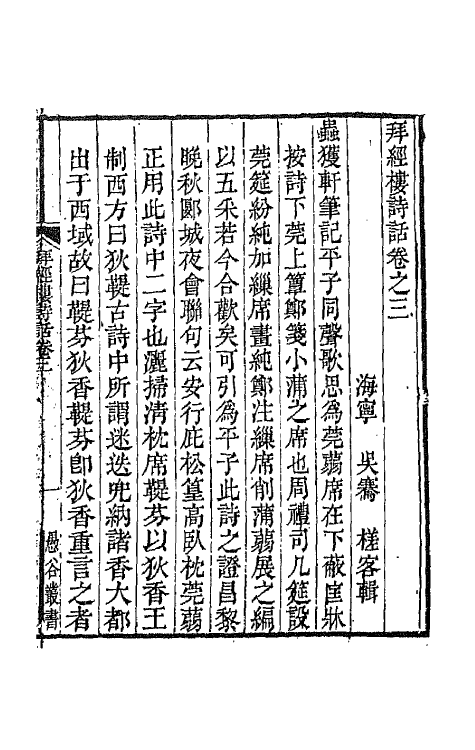 拜經樓詩話卷之三
海寧　吳騫　槎客輯
蟲獲軒筆記平子同聲歌思為莞蒻席在下蔽匡牀
按詩下莞上簟鄭箋小蒲之席也周禮司几筵設
莞筵紛純加繅席畫純鄭注繅席削蒲蒻展之編
以五采若今合歡矣可引為平子此詩之證昌黎
晚秋郾城夜會聯句云安行庇松篁高臥枕莞蒻
正用此詩中二字也灑掃清枕席鞮芬以狄香王
制西方曰狄鞮古詩中所謂迷迭兜納諸香大都
出于西域故曰鞮芬狄香鞮芬卽狄香重言之者
拜經樓詩話卷三
一
愚谷叢書